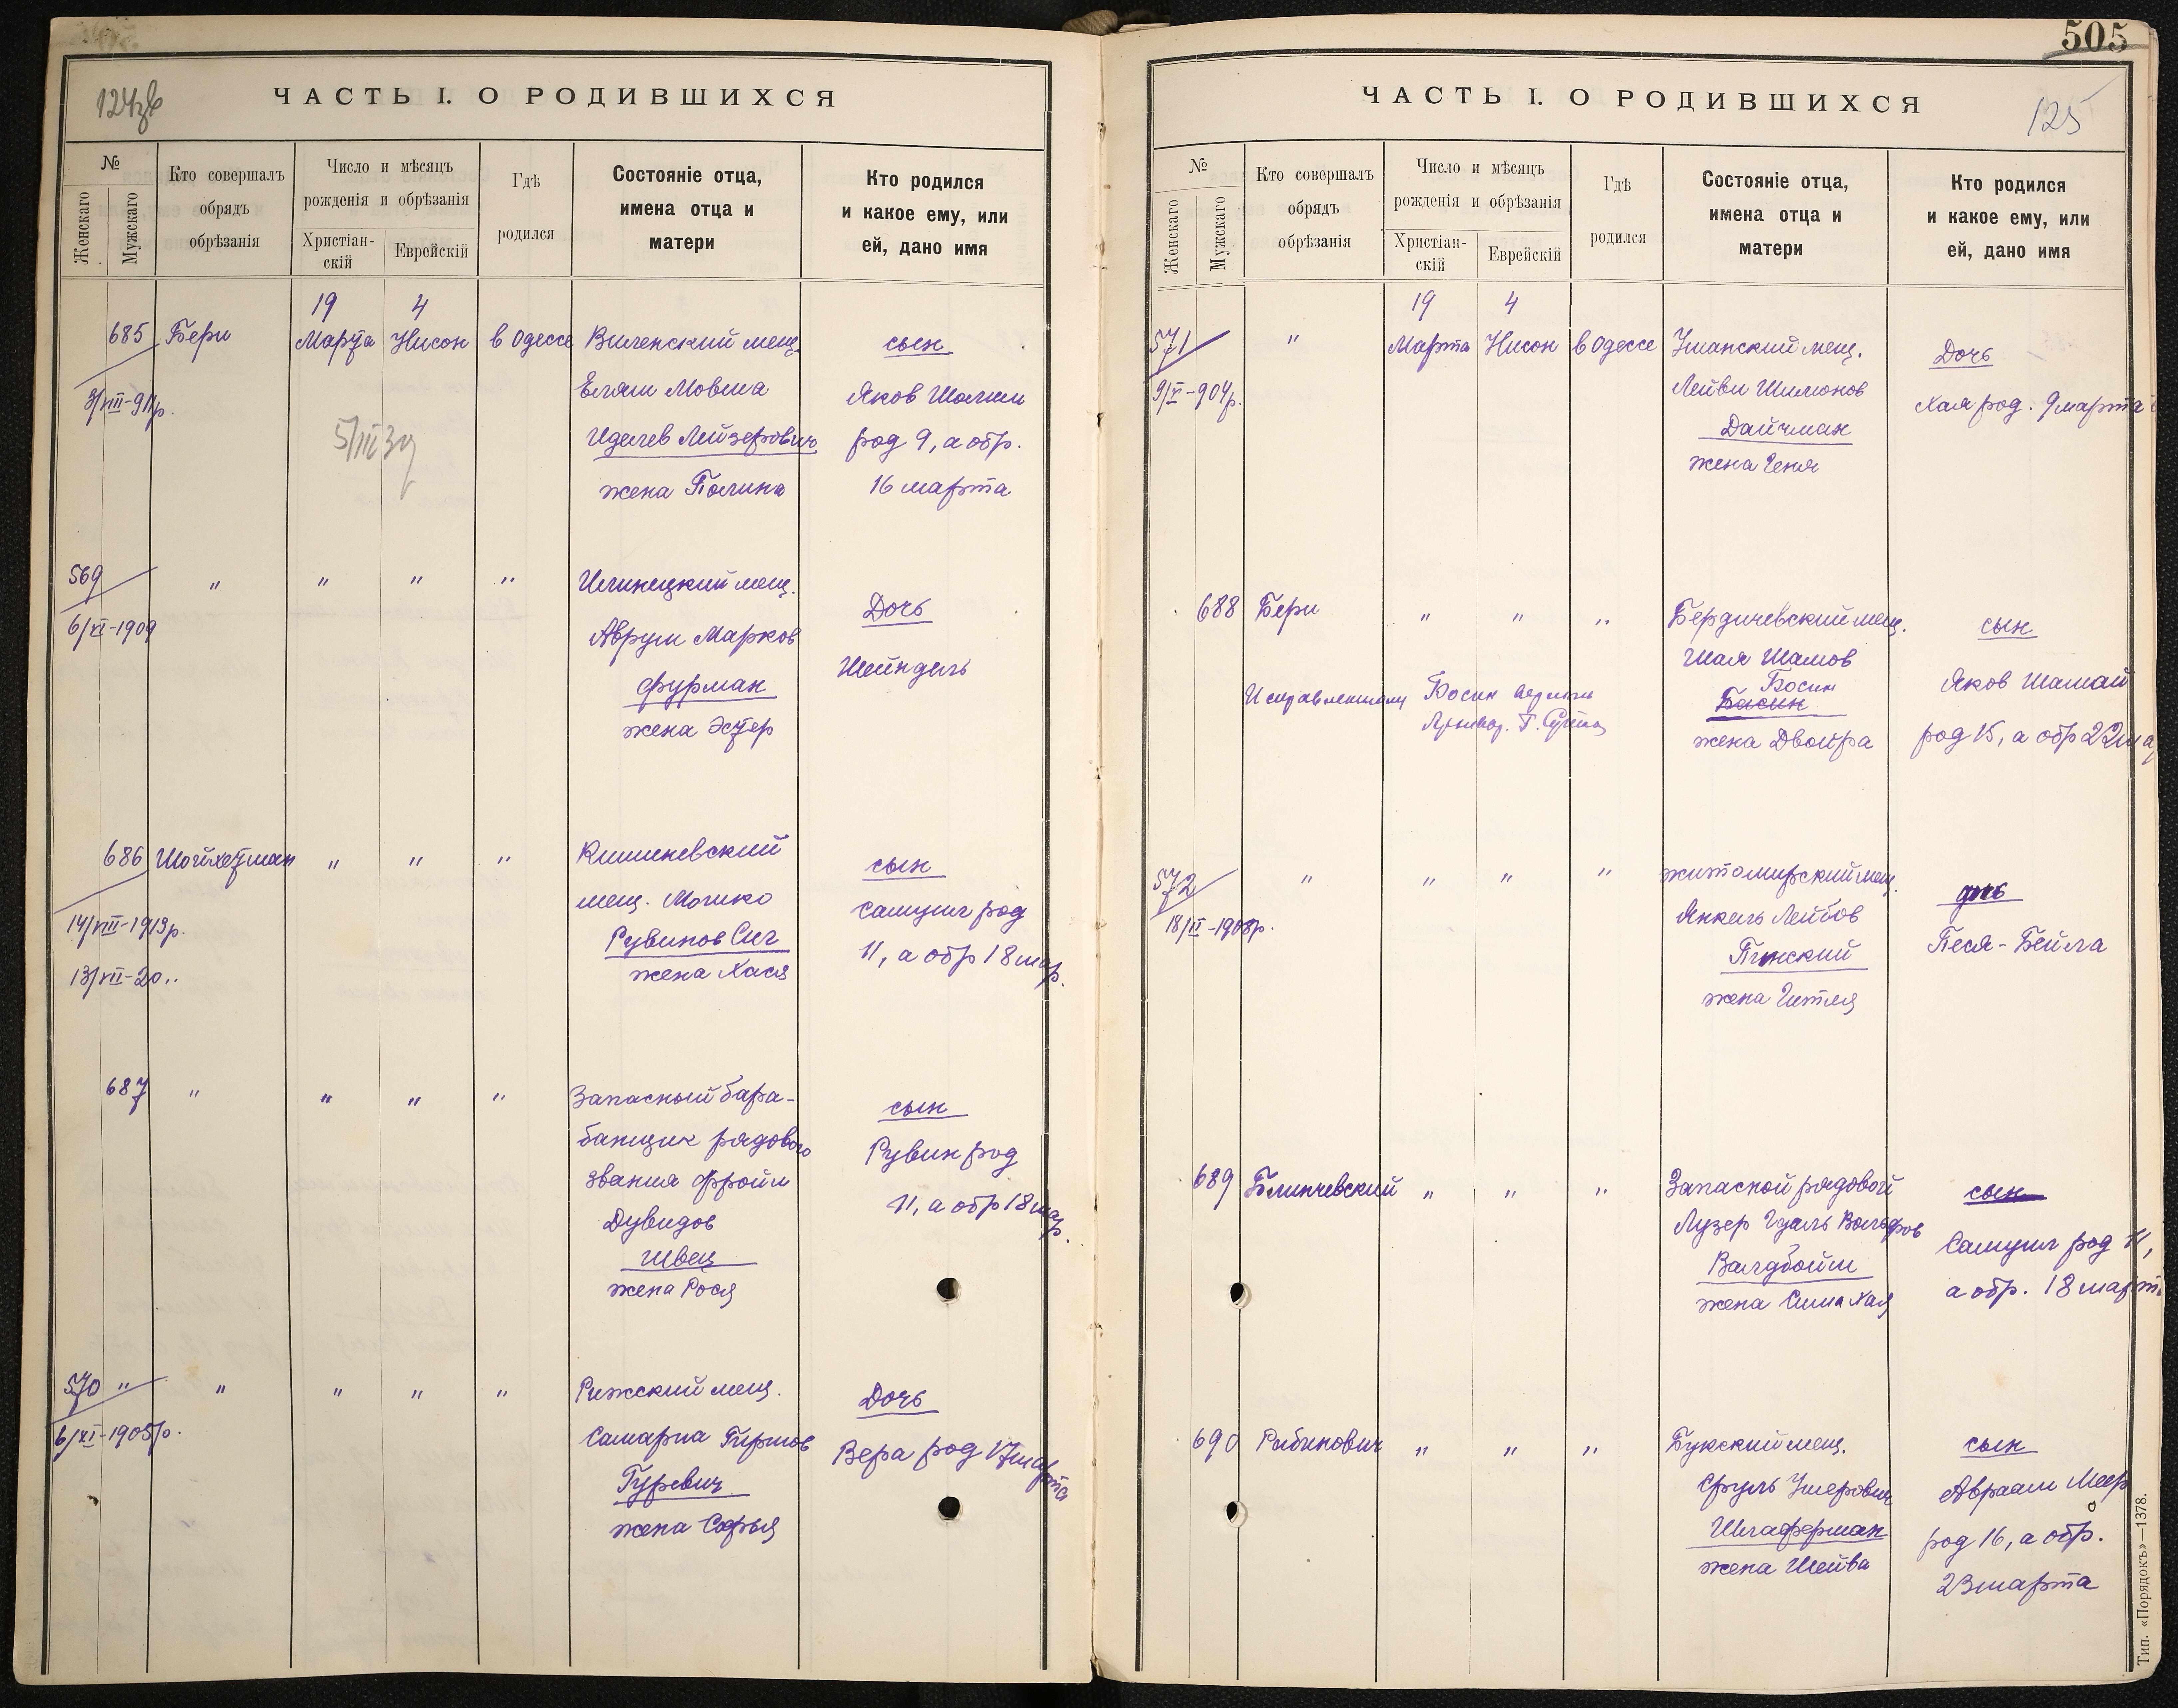 ЧАСТЬ I. О РОДИВШИХСЯ
№
Женскаго
Мужскаго
Кто совершалъ
обрядъ
обрѣзанія
Число и мѣсяцъ
рожденія и обрѣзанія
Христіан-
скій
Еврейскій
Гдѣ
родился
Состояніе отца,
имена отца и
матери
Кто родился
и какое ему, или
ей, дано имя
19 4
685 Бери Марта Нисон в Одессе Виленский мещ. сын
Еляш Мовша Яков Шолим
Иделев Лейзерович род 9, а обр.
жена Полина 16 марта
569 " " " " Илинецкий мещ.
6/XI-1909 Дочь
Аврум Марков
Шейндель
фурман
жена Эстер
686 Шойхетман " " " Кишиневский сын
14/VIII-1913р. мещ. Мошко Самуил род
Рувинов Сич 11, а обр 18 мар.
13/VII-20.. жена Хася
687 " " " " Запасный бара-
сын
банщик рядового Рувин род
звания Фройм 11, а обр 18 мар.
Дувидов
Швец
жена Рося
570 " " " " " Рижский мещ. Дочь
6/XI-1905р. Самариа Гиршов Вера род 17 марта
Гуревич
жена Софья
505
ЧАСТЬ I. О РОДИВШИХСЯ
125
№
Женскаго
Мужскаго
Кто совершалъ
обрядъ
обрѣзанія
Число и мѣсяцъ
рожденія и обрѣзанія
Христіан-
скій
Еврейскій
Гдѣ
родился
Состояніе отца,
имена отца и
матери
Кто родился
и какое ему, или
ей, дано имя
19 4
571 " Марта Нисон в Одессе Уманский мещ. Дочь
9/V-904р. Лейви Шимонов Хая род. 9 марта
Дайчман
жена Геня
688 Бери " " " Бердичевский мещ. сын
Шая Шамов
Босин Яков Шамай
Исправленному Босин верить
Басин
Архивар.
жена Двойра род 15, а обр 22 ма
572 " " " " житомирский мещ. дчь
18/II-1908р. Янкель Лейбов
Пинский Песя-Бейла
жена Гитля
689 Блинчевский " " " Запасной рядовой сын
Лузер Гдаль Вольфов Самуил род 11,
Валдбойм а обр. 18 март
жена Сима Хая
690 Рабинович " " " Букский мещ. сын
Сруль Умерович Авраам Меер
Шлаферман род 16, а обр.
жена Шейва 23 марта
Тип. «Порядокъ»—1378.